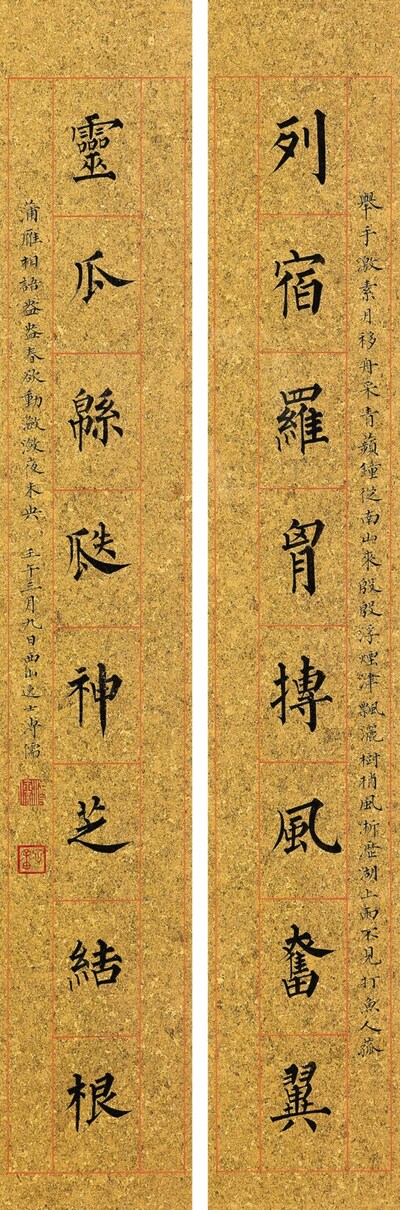 舉手激素月移舟采青蘋鐘從南山來殷殷浮煙津飄灑樹梢風析歷湖上雨不見打魚人菰
列宿羅胷摶風奮翼
靈瓜緜瓞神芝結根
蒲雁相語盎盎春欲動瀲瀲夜未央 壬午三月九日西山逸士溥儒